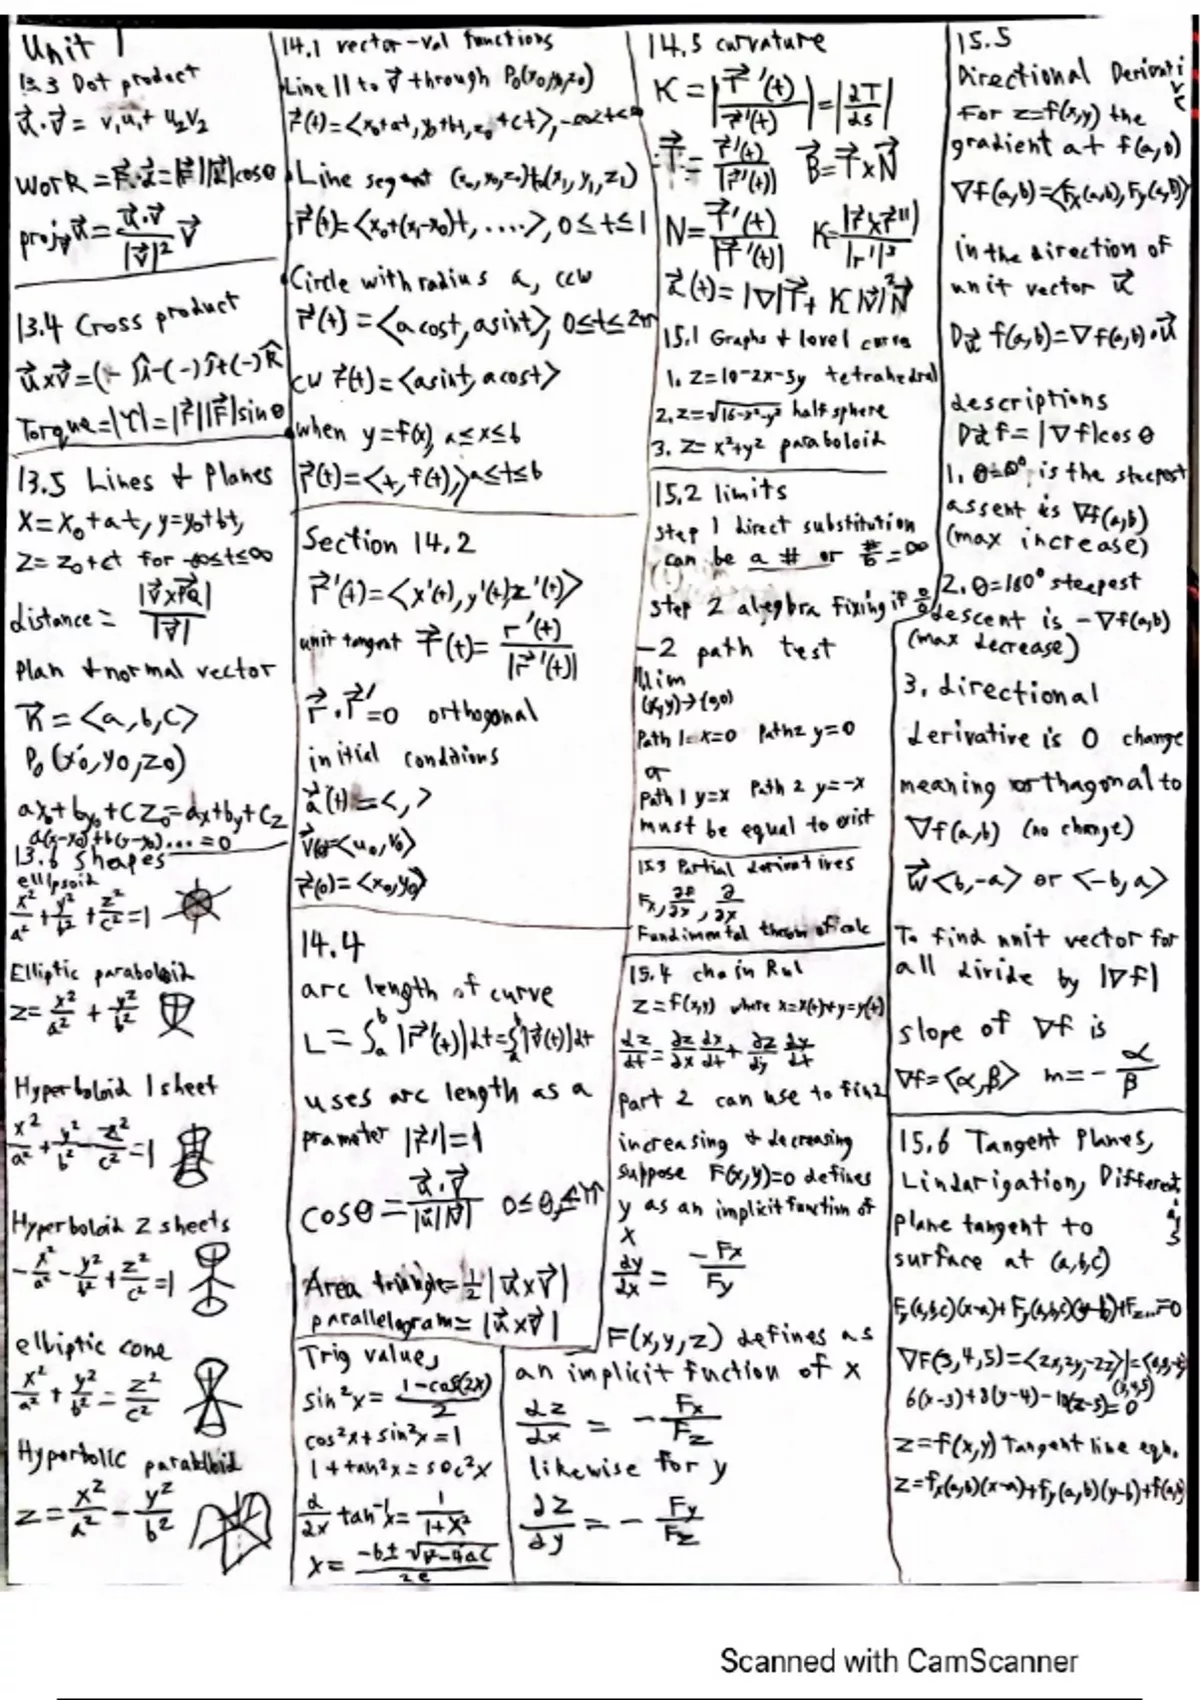 Unit 1
13.3 Dot product
u⃗·v⃗ = v₁u₁ + u₂v₂
Work = F⃗·d⃗ = |F⃗||d⃗|cosθ
proj_v⃗ u⃗ = (u⃗·v⃗)/|v⃗|² v⃗
13.4 Cross product
u⃗×v⃗ = (- )î-(-)ĵ+(-)k̂
Torque = |τ| = |r⃗||F⃗|sinθ
13.5 Lines + Planes
x = x₀ + at, y = y₀ + bt,
z = z₀ + ct for -∞≤t≤∞
distance = |v⃗×PQ|/|v⃗|
Plan + normal vector
n⃗ = <a,b,c>
P₀ (x₀, y₀, z₀)
ax₀ + by₀ + cz₀ = ax + by + cz
a(x-x₀)+b(y-y₀)... = 0
13.6 Shapes
ellipsoid
x²/a² + y²/b² + z²/c² = 1
Elliptic paraboloid
z = x²/a² + y²/b²
Hyperboloid 1 sheet
x²/a² + y²/b² - z²/c² = 1
Hyperboloid 2 sheets
-x²/a² - y²/b² + z²/c² = 1
elliptic cone
x²/a² + y²/b² = z²/c²
Hyperbolic
z = x²/a² - y²/b²
14.1 vector-val functions
Line || to v⃗ through P₀(x₀,y₀,z₀)
r⃗(t) = <x₀+at, y₀+bt, z₀+ct>, -∞≤t≤∞
Line segment (x₀,y₀,z₀) to (x₁,y₁,z₁)
r⃗(t) = <x₀+(x₁-x₀)t, ....>, 0≤t≤1
Circle with radius a, ccw
r⃗(t) = <acost, asint>, 0≤t≤2π
cw r⃗(t) = <asint, acost>
when y=f(x), a≤x≤b
r⃗(t) = <t, f(t)>, a≤t≤b
Section 14.2
r⃗'(t) = <x'(t), y'(t), z'(t)>
unit tangent T⃗(t) = r'(t)/|r⃗'(t)|
r⃗·r⃗' = 0 orthogonal
initial conditions
a⃗(t) = < , >
v(0) = <u₀, v₀>
r⃗(0) = <x₀, y₀>
14.4
arc length of curve
L = ∫ₐᵇ |r⃗'(t)|dt = ∫ₐᵇ |v⃗(t)|dt
uses arc length as a
prameter |r⃗'| = 1
cosθ = u⃗·v⃗/|u||v| 0≤θ≤π
Area triangle = ½|u⃗×v⃗|
parallelogram = |u⃗×v⃗|
Trig values
sin²x = (1-cos(2x))/2
cos²x + sin²x = 1
1 + tan²x = sec²x
d/dx tan⁻¹x = 1/(1+x²)
14.5 curvature
K = |T⃗'(t)/r⃗'(t)| = |dT/ds|
T⃗ = r⃗'(t)/|r⃗'(t)| B⃗ = T⃗×N⃗
N = T⃗'(t)/|T⃗'(t)| K = |r⃗'×r⃗''|/|r'|³
15.1 Graphs + level curve
1. z=10-2x-5y tetrahedral
2. z=√(16-x²-y²) half sphere
3. z= x²+y² paraboloid
15.2 limits
step 1 direct substitution
can be a # or #/0 = ∞
step 2 alegbra fixing if 0/0
-2 path test
lim
(x,y)→(0,0)
Path 1= x=0 Path 2 y=0
or
Path 1 y=x Path 2 y=-x
must be equal to exist
15.3 Partial derivatives
Fx, ∂F/∂x, ∂/∂x
Fundimental of calc
15.4 chain Rul
z = f(x,y) where x=x(t)+y=y(t)
dz/dt = ∂z/∂x dx/dt + ∂z/∂y dy/dt
Part 2 can use to find
increasing + decreasing
suppose F(x,y)=0 defines
y as an implicit function of
x
dy/dx = -Fx/Fy
F(x,y,z) defines as
an implicit fuction of x
∂z/∂x = -Fx/Fz
likewise for y
∂z/∂y = -Fy/Fz
15.5
Directional Derivative
For z=f(x,y) the
gradient at f(a,b)
∇f(a,b) = <Fx(a,b), Fy(a,b)>
in the direction of
unit vector u⃗
Du⃗ f(a,b) = ∇f(a,b)·u⃗
descriptions
Du⃗ f = |∇f|cosθ
1. θ=0° is the steepest
assent is ∇f(a,b)
(max increase)
2. θ=180° steepest
descent is -∇f(a,b)
(max decrease)
3. directional
derivative is 0 change
meaning orthagonal to
∇f(a,b) (no change)
w⃗ <b,-a> or <-b,a>
To find unit vector for
all divide by |∇f|
slope of ∇f is
∇f = <α,β> m = -α/β
15.6 Tangent Planes,
Differentials
plane tangent to
surface at (a,b,c)
Fx(a,b,c)(x-a)+Fy(a,b,c)(y-b)+Fz...=0
6(x-3)+8(y-4)-10(z-5)=0
z = f(x,y) Tangent line eqn.
z = fx(a,b)(x-a)+fy(a,b)(y-b)+f(a,b)
Scanned with CamScanner